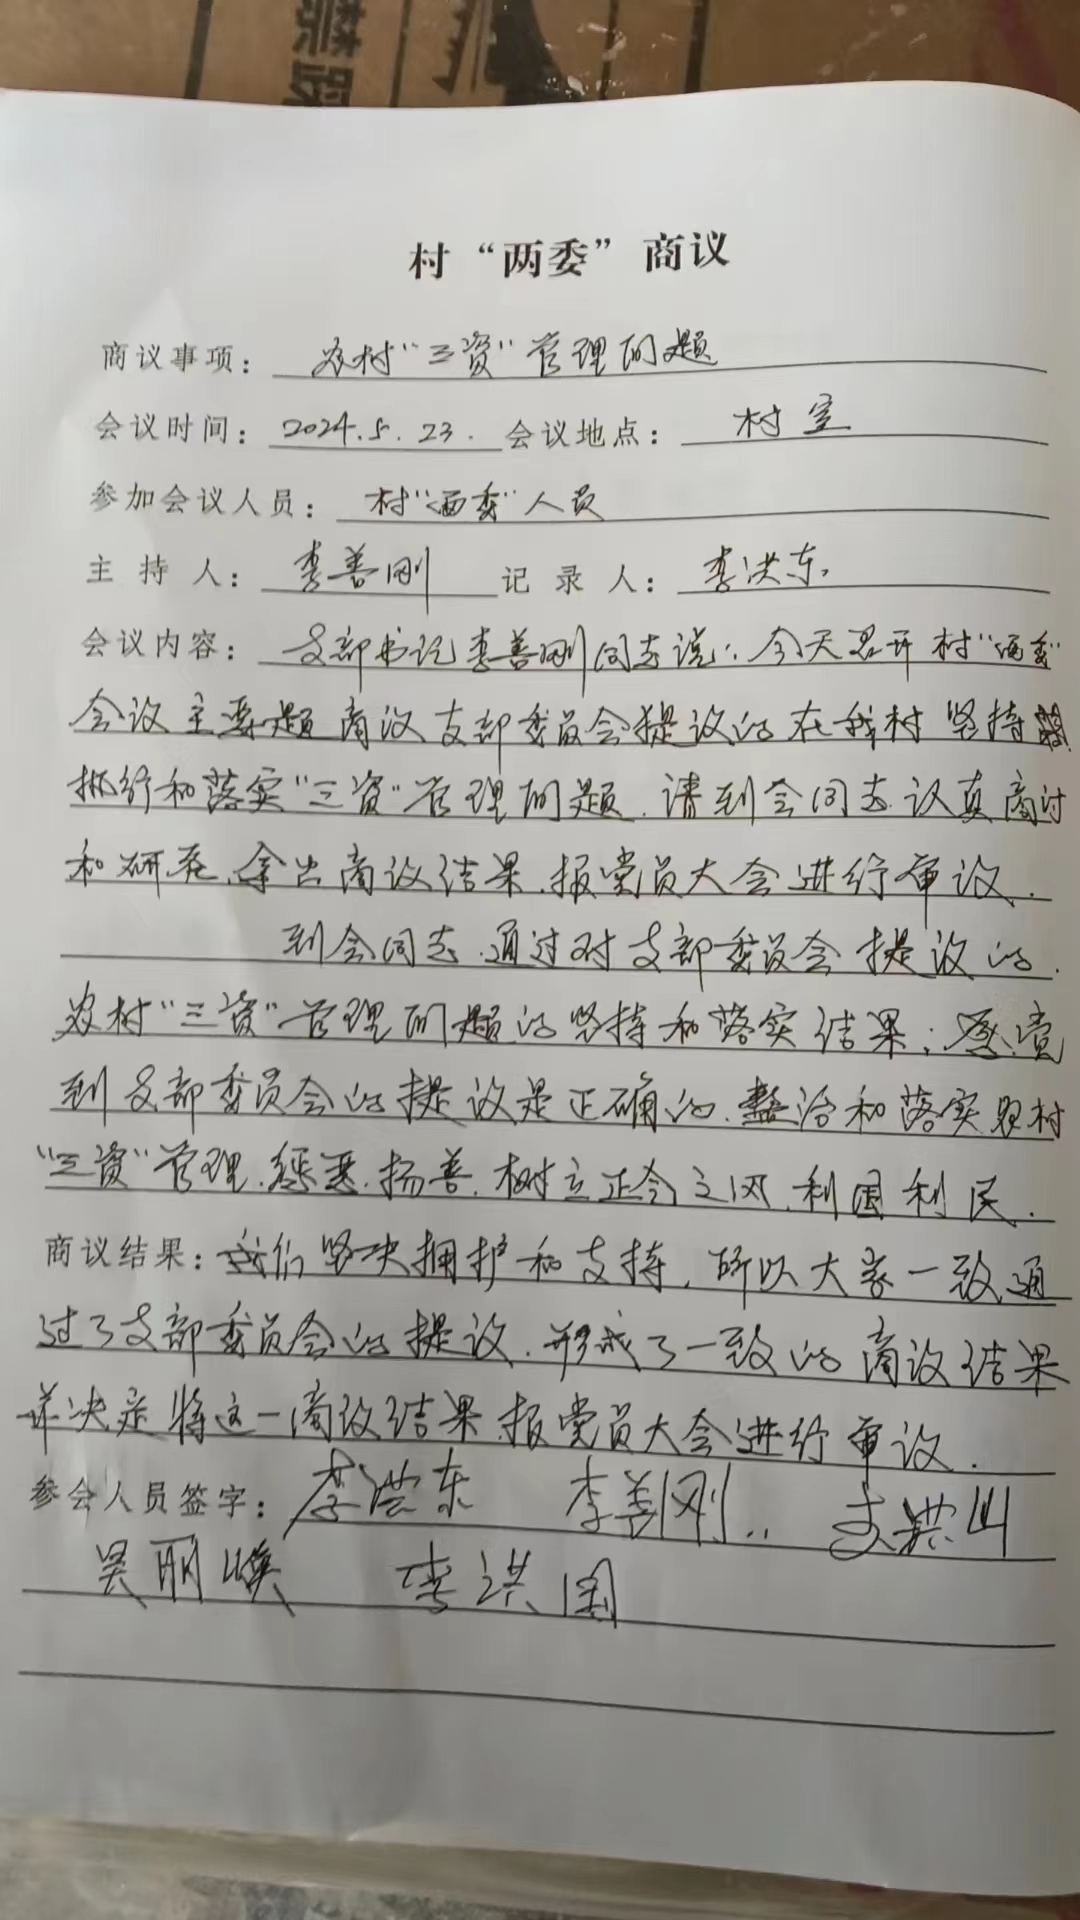 村“两委”商议
商议事项：农村“三资”管理问题
会议时间：2024.5.23. 会议地点：村室
参加会议人员：村“两委”人员
主持人：李善刚 记录人：李洪东
会议内容：支部书记李善刚同志说：今天召开村“两委”
会议主要是商议支部委员会提议的在我村坚持
抓行和落实“三资”管理问题，请到会同志认真商讨
和研究，拿出商议结果，报党员大会进行审议。
到会同志，通过对支部委员会提议的，
农村“三资”管理问题的坚持和落实结果；感觉
到支部委员会的提议是正确的，整治和落实农村
“三资”管理，惩恶扬善，树立正会之风，利国利民。
商议结果：我们坚决拥护和支持，所以大家一致通
过了支部委员会的提议，形成了一致的商议结果
并决定将这一商议结果，报党员大会进行审议。
参会人员签字：李洪东 李善刚 洪山
吴丽焕 李洪国